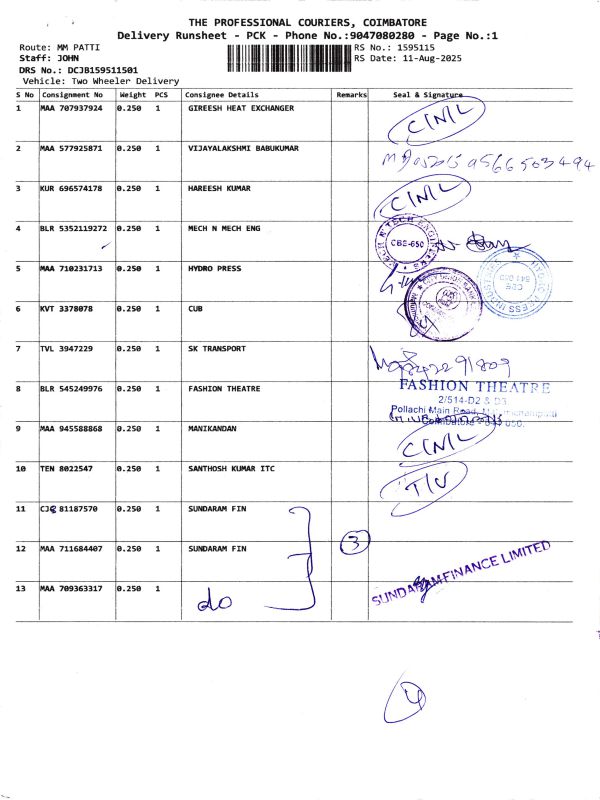 THE PROFESSIONAL COURIERS, COIMBATORE
Delivery Runsheet - PCK - Phone No.:9047080280 - Page No.:1
Route: MM PATTI RS No.: 1595115
Staff: JOHN RS Date: 11-Aug-2025
DRS No.: DCJB159511501
Vehicle: Two Wheeler Delivery
S No Consignment No Weight PCS Consignee Details Remarks Seal & Signature
1 MAA 707937924 0.250 1 GIREESH HEAT EXCHANGER C/N/L
2 MAA 577925871 0.250 1 VIJAYALAKSHMI BABUKUMAR 9566503494
3 KUR 696574178 0.250 1 HAREESH KUMAR C/N/L
4 BLR 5352119272 0.250 1 MECH N MECH ENG
CBE-650
5 MAA 710231713 0.250 1 HYDRO PRESS
6 KVT 3378078 0.250 1 CUB
7 TVL 3947229 0.250 1 SK TRANSPORT
8 BLR 545249976 0.250 1 FASHION THEATRE FASHION THEATRE
2/514-D2 & D3
Pollachi Main Road,
Coimbatore - 641 050.
9 MAA 945588868 0.250 1 MANIKANDAN C/N/L
10 TEN 8022547 0.250 1 SANTHOSH KUMAR ITC
11 81187570 0.250 1 SUNDARAM FIN
12 MAA 711684407 0.250 1 SUNDARAM FIN 3 SUNDARAM FINANCE LIMITED
13 MAA 709363317 0.250 1 do
4